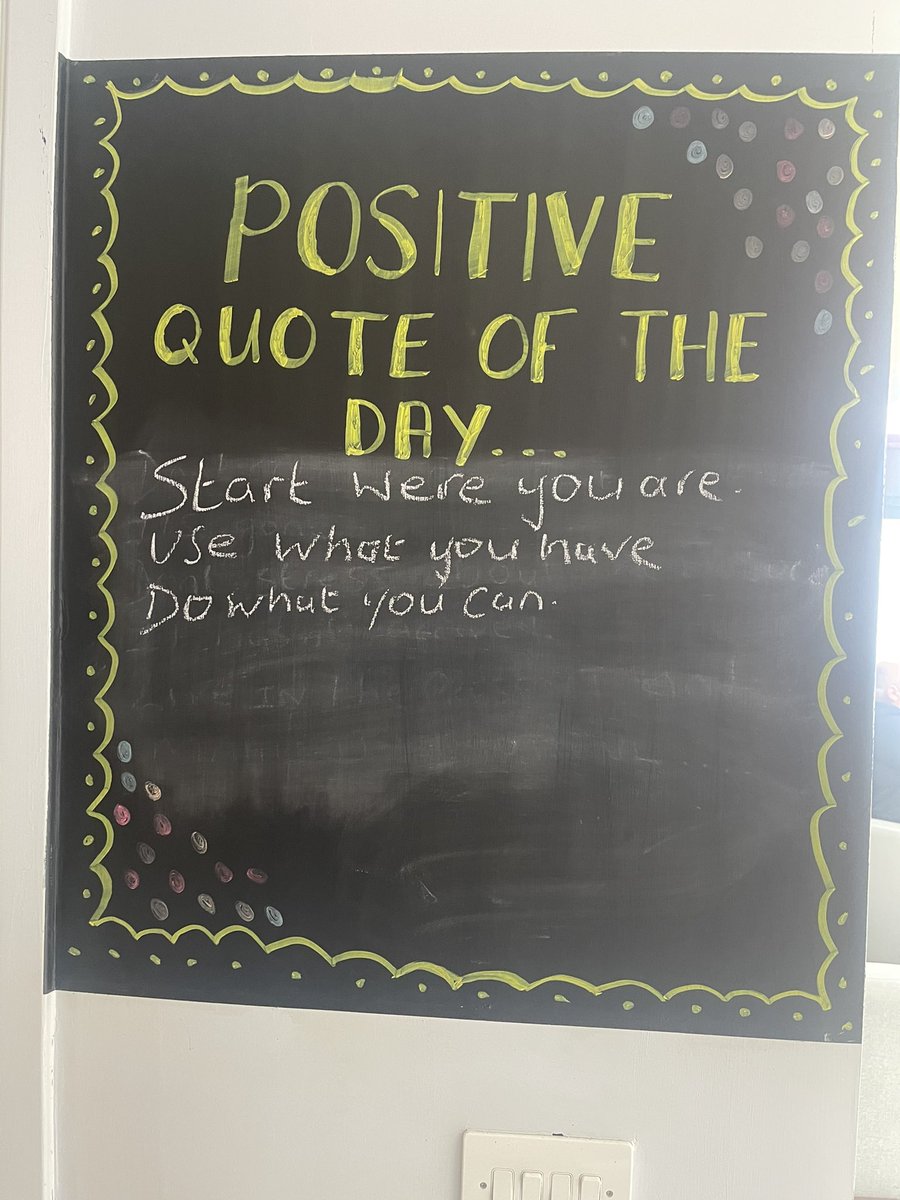 POSITIVE
QUOTE OF THE
DAY...
Start were you are.
Use what you have
Do what you can.